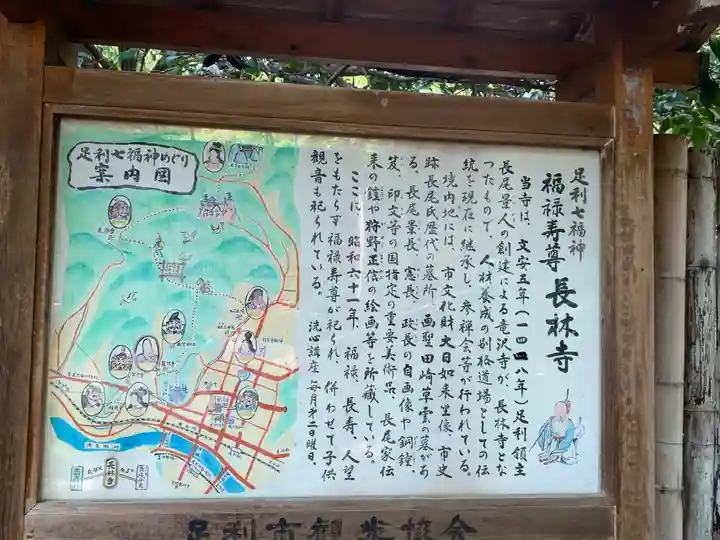 足利七福神めぐり
案内図
足利七福神
福禄寿尊 長林寺
当寺は、文安五年(一四四八年)足利領主
長尾景人の創建による竜沢寺が、長林寺とな
つたもので、人材養成の別格道場としての伝
統を現在に継承し、参禅会等が行われている。
境内地には、市文化財大日如来坐像、市史
跡長尾氏歴代の墓所、画聖田崎草雲の墓があ
る。長尾景長、憲長、政長の自画像や銅鐘、
笈、印文等の国指定の重要美術品、長尾家伝
来の鎧や狩野正信の絵画等を所蔵している。
ここに、昭和六十一年、福禄、長寿、人望
をもたらす福禄寿尊が祀られ、併わせて子供
観音も祀られている。
洗心講座 毎月第二日曜日、
長林寺
足利市観光協会